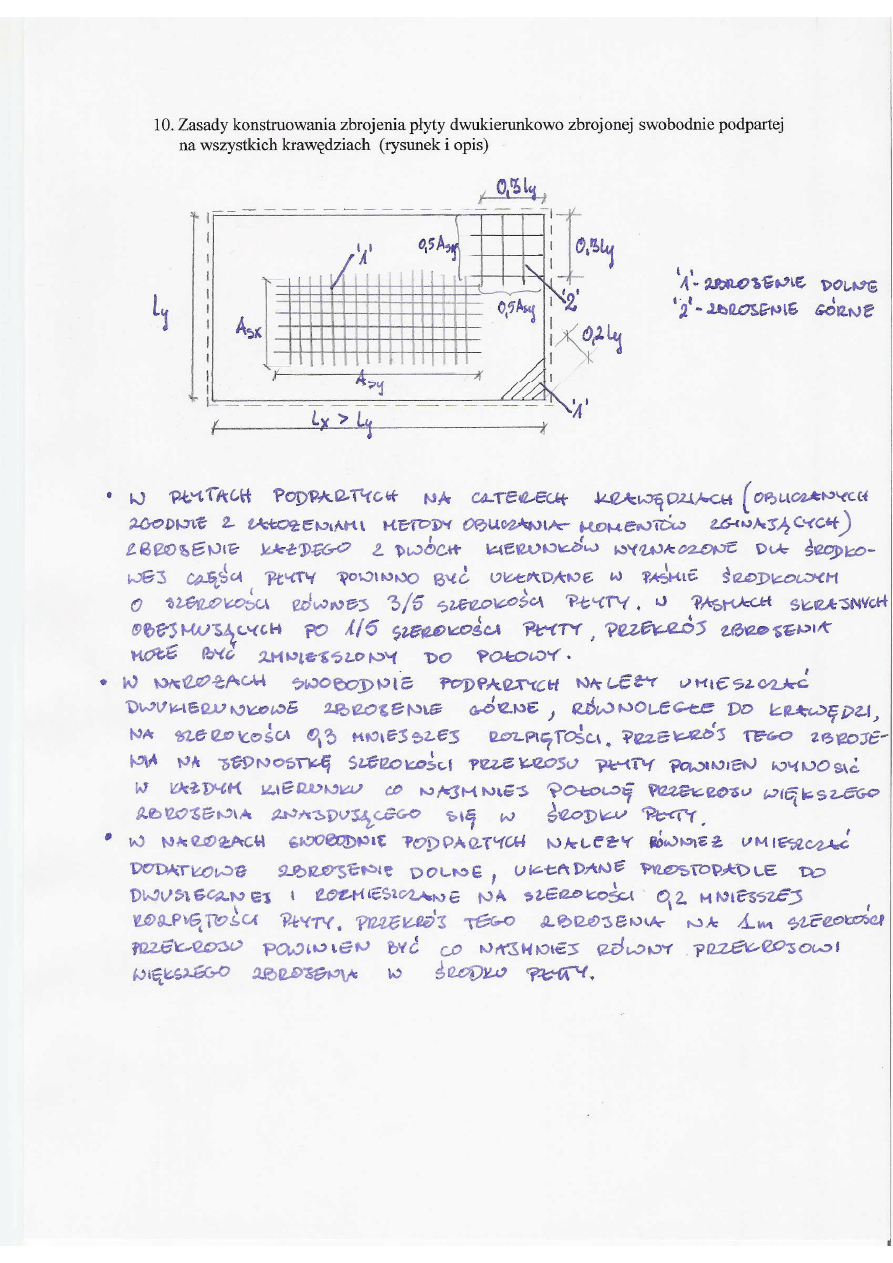 10. Zasady konstruowania zbrojenia płyty dwukierunkowo zbrojonej swobodnie podpartej
na wszystkich krawędziach (rysunek i opis)
0,3 ly
0,5 Asx
0,3 ly
'1'
'1' - ZBROJENIE DOLNE
'2'
'2' - ZBROJENIE GÓRNE
0,5 Asy
ly
Asx
0,2 ly
Asy
'1'
Lx > Ly
• W PŁYTACH PODPARTYCH NA CZTERECH KRAWĘDZIACH (OBLICZANYCH
ZGODNIE Z ZAŁOŻENIAMI METODY OBLICZANIA MOMENTÓW ZGINAJĄCYCH)
ZBROJENIE KAŻDEGO Z DWÓCH KIERUNKÓW WYZNACZONE DLA ŚRODKO-
WEJ CZĘŚCI PŁYTY POWINNO BYĆ UKŁADANE W PAŚMIE ŚRODKOWYM
O SZEROKOŚCI RÓWNEJ 3/5 SZEROKOŚCI PŁYTY. W PASMACH SKRAJNYCH
OBEJMUJĄCYCH PO 1/5 SZEROKOŚCI PŁYTY, PRZEKRÓJ ZBROJENIA
MOŻE BYĆ ZMNIEJSZONY DO POŁOWY.
• W NAROŻACH SWOBODNIE PODPARTYCH NALEŻY UMIESZCZAĆ
DWUKIERUNKOWE ZBROJENIE GÓRNE, RÓWNOLEGŁE DO KRAWĘDZI,
NA SZEROKOŚCI 0,3 MNIEJSZEJ ROZPIĘTOŚCI. PRZEKRÓJ TEGO ZBROJE-
NIA NA JEDNOSTKĘ SZEROKOŚCI PRZEKROJU PŁYTY POWINIEN WYNOSIĆ
W KAŻDYM KIERUNKU CO NAJMNIEJ POŁOWĘ PRZEKROJU WIĘKSZEGO
ZBROJENIA ZNAJDUJĄCEGO SIĘ W ŚRODKU PŁYTY.
• W NAROŻACH SWOBODNIE PODPARTYCH NALEŻY RÓWNIEŻ UMIESZCZAĆ
DODATKOWE ZBROJENIE DOLNE, UKŁADANE PROSTOPADLE DO
DWUSIECZNEJ I ROZMIESZCZANE NA SZEROKOŚCI 0,2 MNIEJSZEJ
ROZPIĘTOŚCI PŁYTY. PRZEKRÓJ TEGO ZBROJENIA NA 1m SZEROKOŚCI
PRZEKROJU POWINIEN BYĆ CO NAJMNIEJ RÓWNY PRZEKROJOWI
WIĘKSZEGO ZBROJENIA W ŚRODKU PŁYTY.